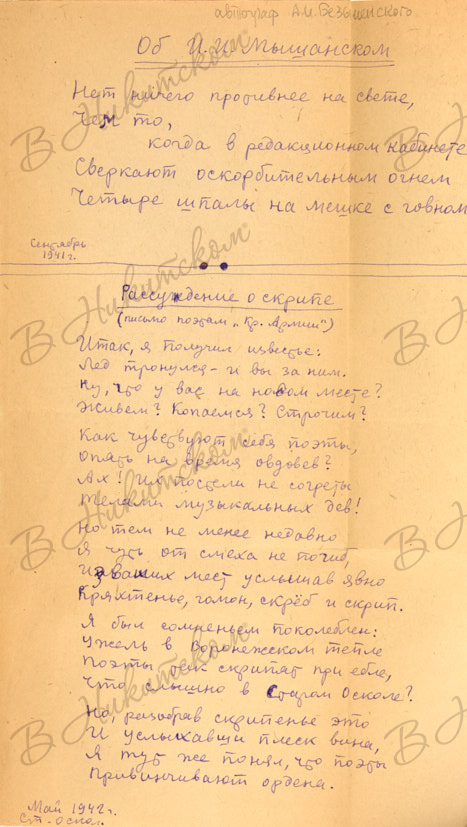 автограф А.И. Безыменского
Об И. И. Мышанском
Нет ничего противнее на свете,
Чем то,
когда в редакционном кабинете
Сверкают оскорбительным огнем
Четыре шпалы на мешке с говном
Сентябрь
1941 г.
Рассуждение о скрипе
(письмо поэтам „Кр. Армии")
Итак, я получил известье:
Лед тронулся – и вы за ним.
Ну, что у вас на новом месте?
Живем? Копаемся? Строчим?
Как чувствуют себя поэты,
Опять на время овдовев?
Ах! Их постели не согреты
Телами музыкальных дев!
Но тем не менее недавно
Я чуть от смеха не погиб,
Из ваших мест услышав явно
Кряхтенье, гомон, скрёб и скрип.
Я был сомненьем поколеблен:
Ужель в Воронежском тепле
Поэты так скрипят при ебле,
Что слышно в Старом Осколе?
Но, разобрав скрипенье это
И услыхавши плеск вина,
Я тут же понял, что поэты
Привинчивают ордена.
Май 1942 г.
Ст. Оскол.
В Никитском
В Никитском
В Никитском
В Никитском
В Никитском
В Никитском
В Никитском
В Никитском